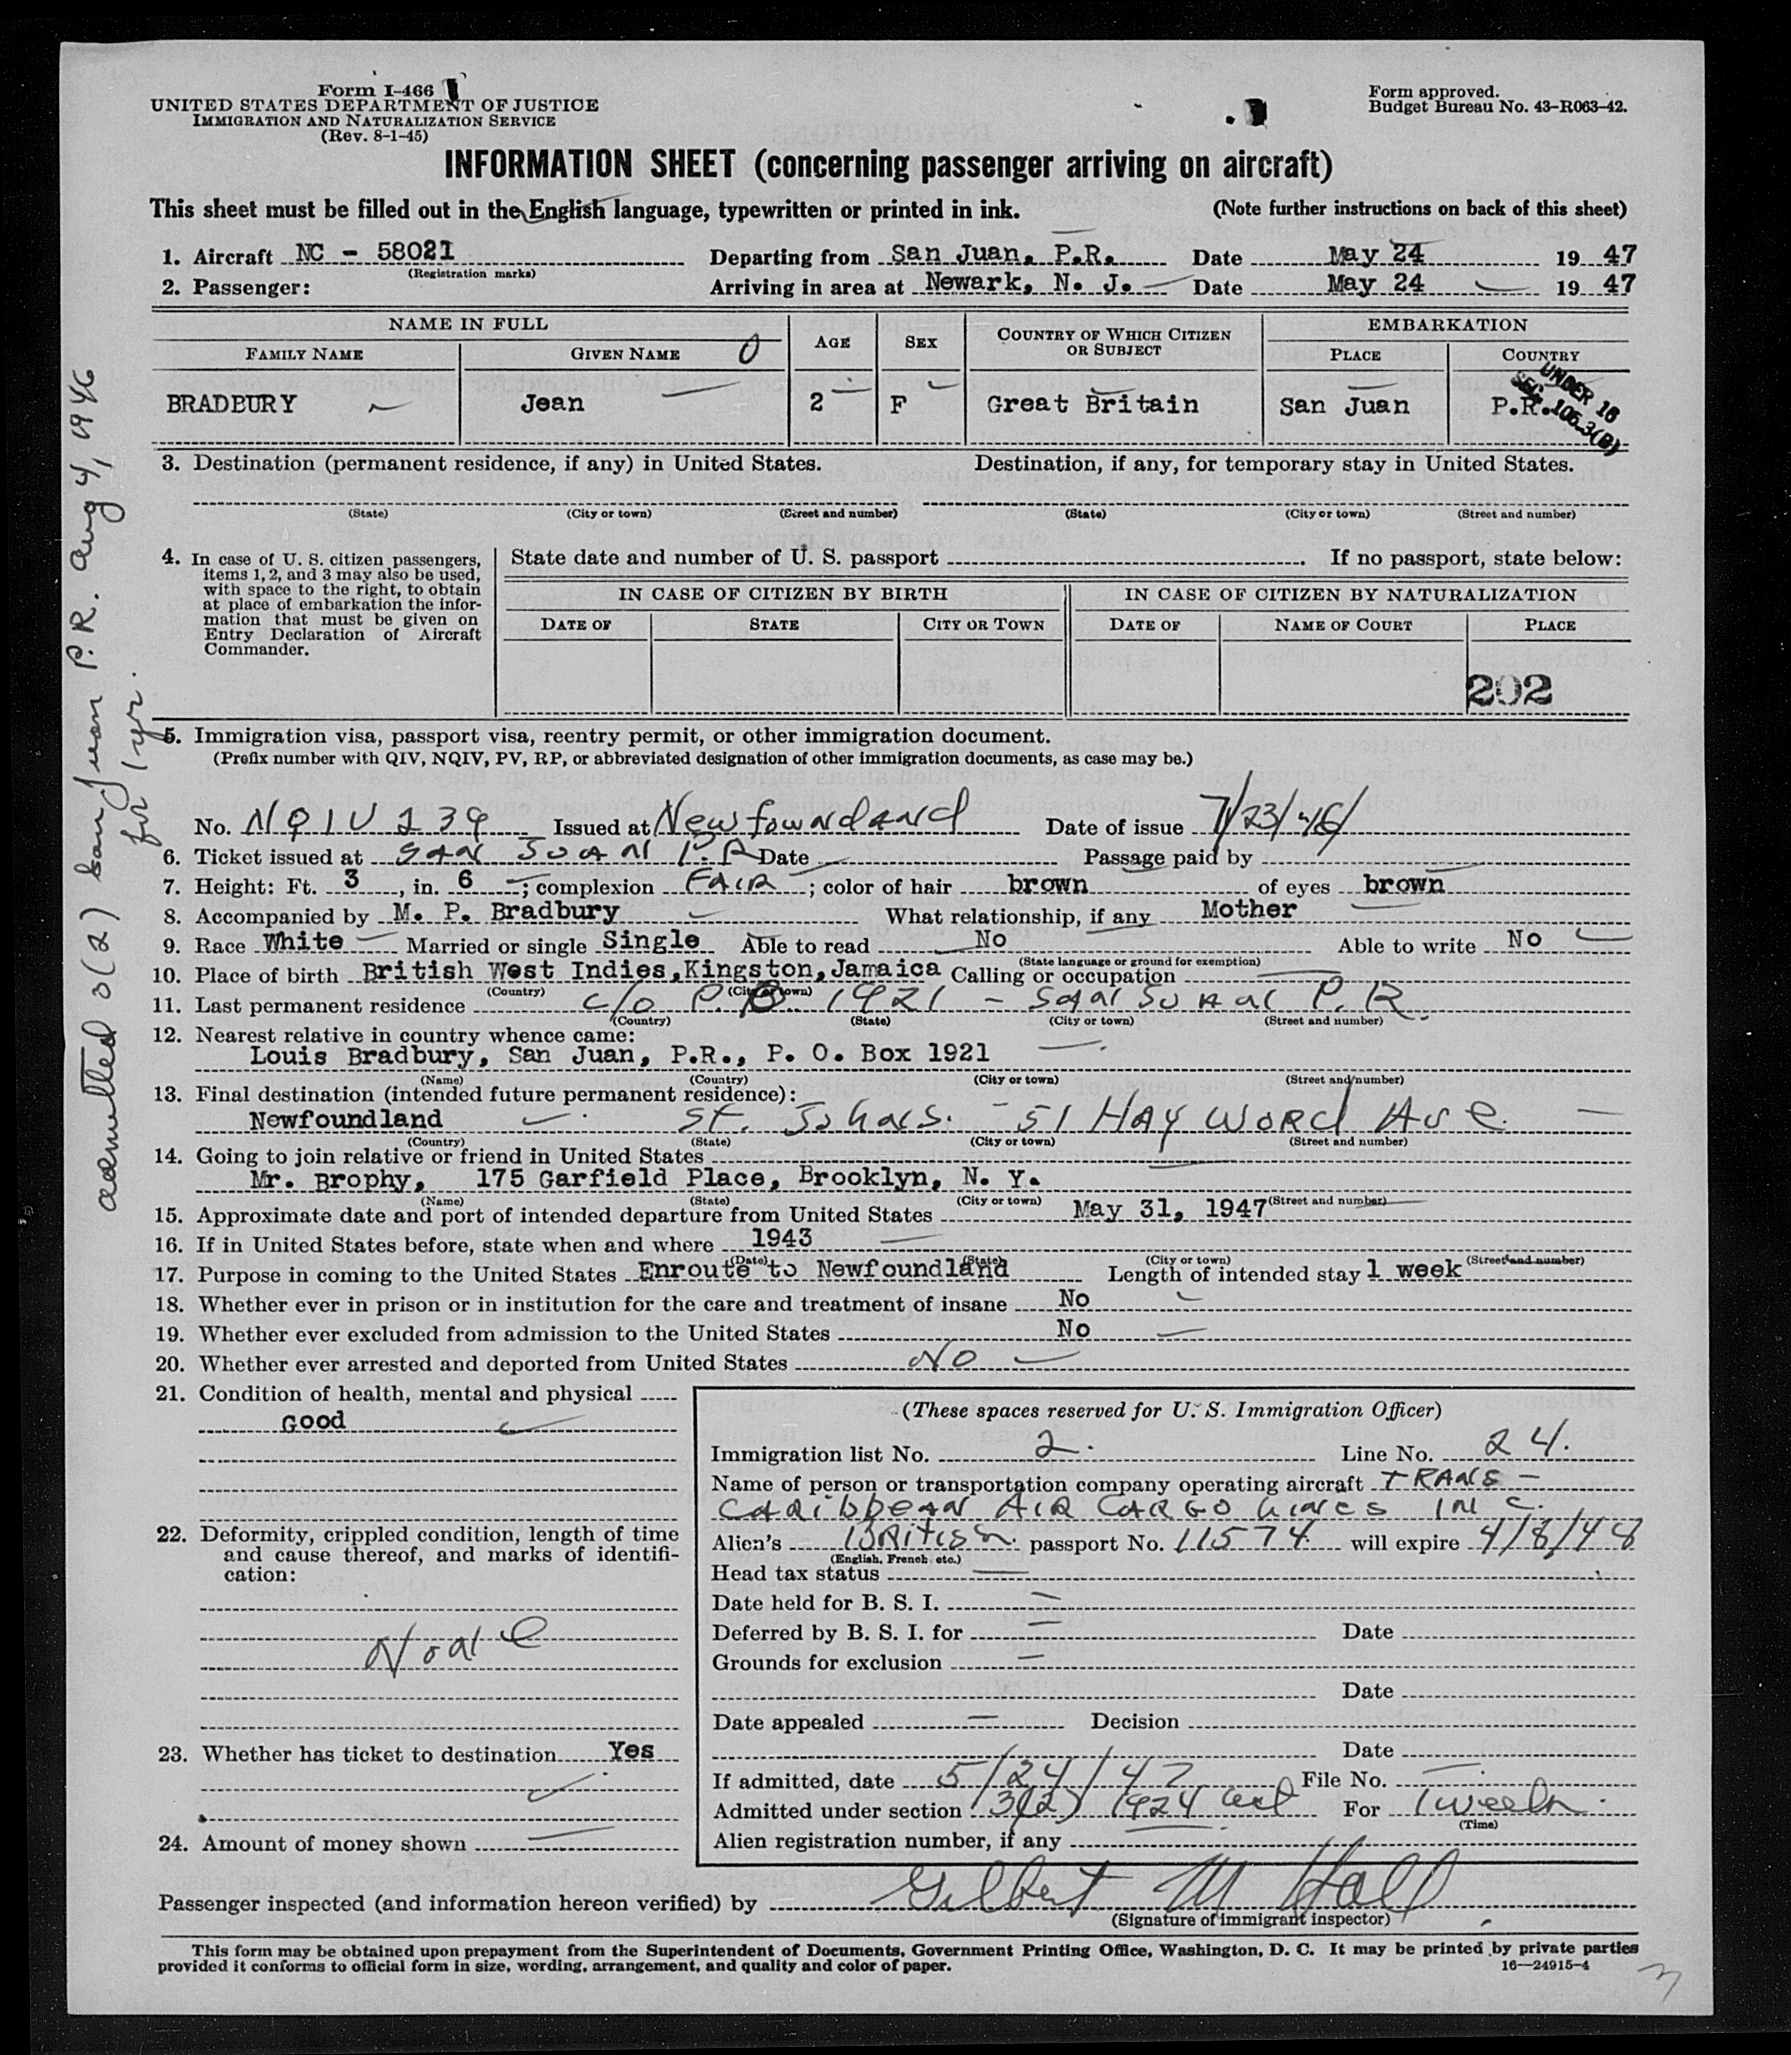 Form I-466
UNITED STATES DEPARTMENT OF JUSTICE
IMMIGRATION AND NATURALIZATION SERVICE
(Rev. 8-1-45)
Form approved.
Budget Bureau No. 43-R063-42.
INFORMATION SHEET (concerning passenger arriving on aircraft)
This sheet must be filled out in the English language, typewritten or printed in ink. (Note further instructions on back of this sheet)
1. Aircraft NC - 58021 Departing from San Juan, P.R. Date May 24 1947
(Registration marks)
2. Passenger: Arriving in area at Newark, N. J. Date May 24 1947
NAME IN FULL AGE SEX COUNTRY OF WHICH CITIZEN OR SUBJECT EMBARKATION
FAMILY NAME GIVEN NAME PLACE COUNTRY
0
BRADBURY Jean 2 F Great Britain San Juan P.R.
UNDER 16
SEC. 106.3(B)
3. Destination (permanent residence, if any) in United States. Destination, if any, for temporary stay in United States.
(State) (City or town) (Street and number) (State) (City or town) (Street and number)
4. In case of U. S. citizen passengers, items 1, 2, and 3 may also be used, with space to the right, to obtain at place of embarkation the information that must be given on Entry Declaration of Aircraft Commander.
State date and number of U. S. passport . If no passport, state below:
IN CASE OF CITIZEN BY BIRTH IN CASE OF CITIZEN BY NATURALIZATION
DATE OF STATE CITY OR TOWN DATE OF NAME OF COURT PLACE
202
5. Immigration visa, passport visa, reentry permit, or other immigration document.
(Prefix number with QIV, NQIV, PV, RP, or abbreviated designation of other immigration documents, as case may be.)
No. NQIV 239 Issued at Newfowndland Date of issue 7/23/46
6. Ticket issued at SAN JUAN P.R Date Passage paid by
7. Height: Ft. 3, in. 6; complexion FAIR; color of hair brown of eyes brown
8. Accompanied by M. P. Bradbury What relationship, if any Mother
9. Race White Married or single Single Able to read No Able to write No
(State language or ground for exemption)
10. Place of birth British West Indies, Kingston, Jamaica Calling or occupation
(Country) (City or town)
11. Last permanent residence c/o P.B. 1921 - San Juan P.R.
(Country) (State) (City or town) (Street and number)
12. Nearest relative in country whence came:
Louis Bradbury, San Juan, P.R., P. O. Box 1921
(Name) (Country) (City or town) (Street and number)
13. Final destination (intended future permanent residence):
Newfoundland St. Johns. - 51 HAY WORd Ave.
(Country) (State) (City or town) (Street and number)
14. Going to join relative or friend in United States
Mr. Brophy, 175 Garfield Place, Brooklyn, N. Y.
(Name) (State) (City or town) (Street and number)
15. Approximate date and port of intended departure from United States May 31, 1947
16. If in United States before, state when and where 1943
(Date) (State) (City or town) (Street and number)
17. Purpose in coming to the United States Enroute to Newfoundland Length of intended stay 1 week
18. Whether ever in prison or in institution for the care and treatment of insane No
19. Whether ever excluded from admission to the United States No
20. Whether ever arrested and deported from United States No
21. Condition of health, mental and physical
Good
22. Deformity, crippled condition, length of time and cause thereof, and marks of identification:
None
23. Whether has ticket to destination Yes
24. Amount of money shown
(These spaces reserved for U. S. Immigration Officer)
Immigration list No. 2. Line No. 24.
Name of person or transportation company operating aircraft TRANS-
CARibbEAN AIR CARGO Lines INC.
Alien's British passport No. 11574 will expire 4/8/48
(English, French etc.)
Head tax status
Date held for B. S. I.
Deferred by B. S. I. for Date
Grounds for exclusion
Date
Date appealed Decision
Date
If admitted, date 5/24/47 File No.
Admitted under section 3(2) 1924 act For 1 week.
(Time)
Alien registration number, if any
Passenger inspected (and information hereon verified) by Gilbert M Hall
(Signature of immigrant inspector)
This form may be obtained upon prepayment from the Superintendent of Documents, Government Printing Office, Washington, D. C. It may be printed by private parties
provided it conforms to official form in size, wording, arrangement, and quality and color of paper. 16—24915-4
admitted 3(2) San Juan P.R. Aug 4, 1946
for 1 yr.